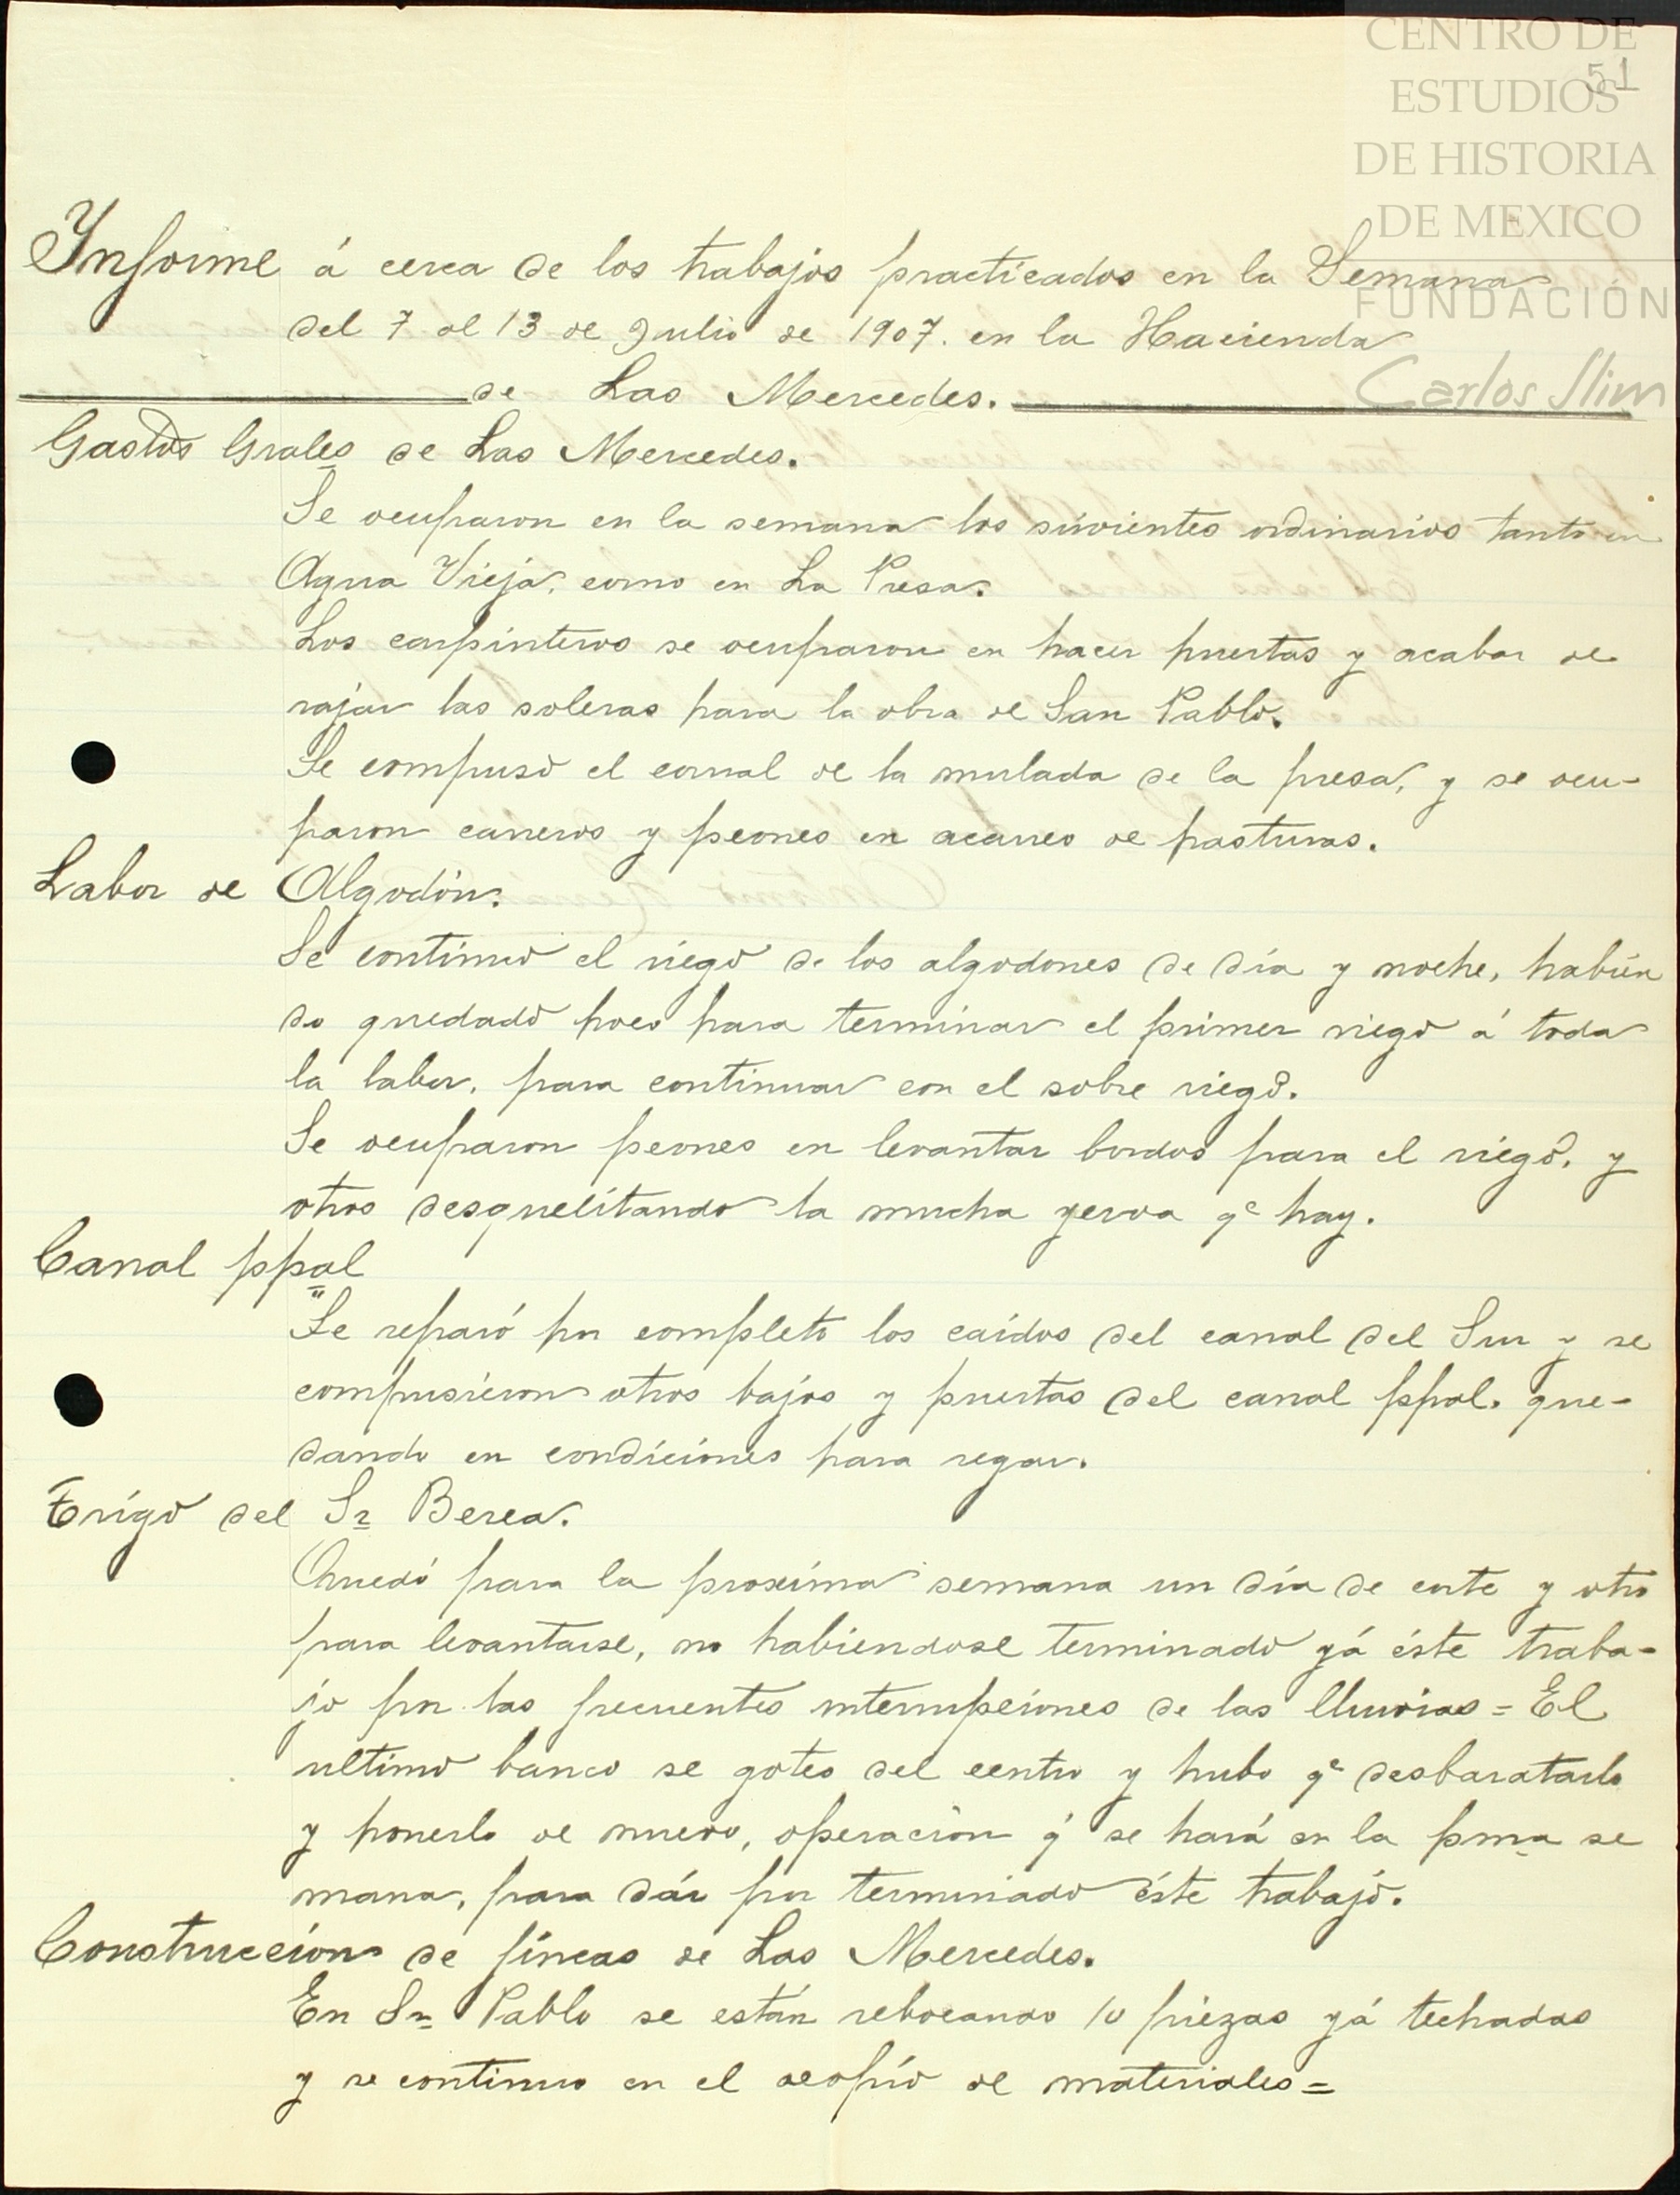 CENTRO DE
ESTUDIOS
DE HISTORIA
DE MEXICO
FUNDACIÓN
Carlos Slim
51
Informe á cerca de los trabajos practicados en la Semana
del 7 al 13 de Julio de 1907. en la Hacienda
de Las Mercedes.
Gastos Grales de Las Mercedes.
Se ocuparon en la semana los sirvientes ordinarios tanto en
Agua Vieja, como en La Presa.
Los carpinteros se ocuparon en hacer puertas y acabar de
rajar las soleras para la obra de San Pablo.
Se compuso el corral de la mulada de la presa, y se ocu-
paron carreros y peones en acarreo de pasturas.
Labor de Algodón.
Se continuó el riego de los algodones de día y noche, habien
do quedado poco para terminar el primer riego á toda
la labor, para continuar con el sobre riego.
Se ocuparon peones en levantar bordos para el riego, y
otros desquelitando la mucha yerva qe hay.
Canal ppal
Se reparó por completo los caídos del canal del Sur y se
compusieron otros bajos y puertas del canal ppal. que-
dando en condiciones para regar.
Trigo del Sr Berea.
Quedó para la proxima semana un día de corte y otro
para levantarse, no habiendose terminado yá éste traba-
jo por las frecuentes interrupciones de las lluvias = El
ultimo banco se goteo del centro y hubo qe desbaratarlo
y ponerlo de nuevo, operación q' se hará en la pma se
mana, para dár por terminado éste trabajo.
Construccion de fincas de Las Mercedes.
En Sn Pablo se están rebocando 10 piezas yá techadas
y se continuo en el acopio de materiales =